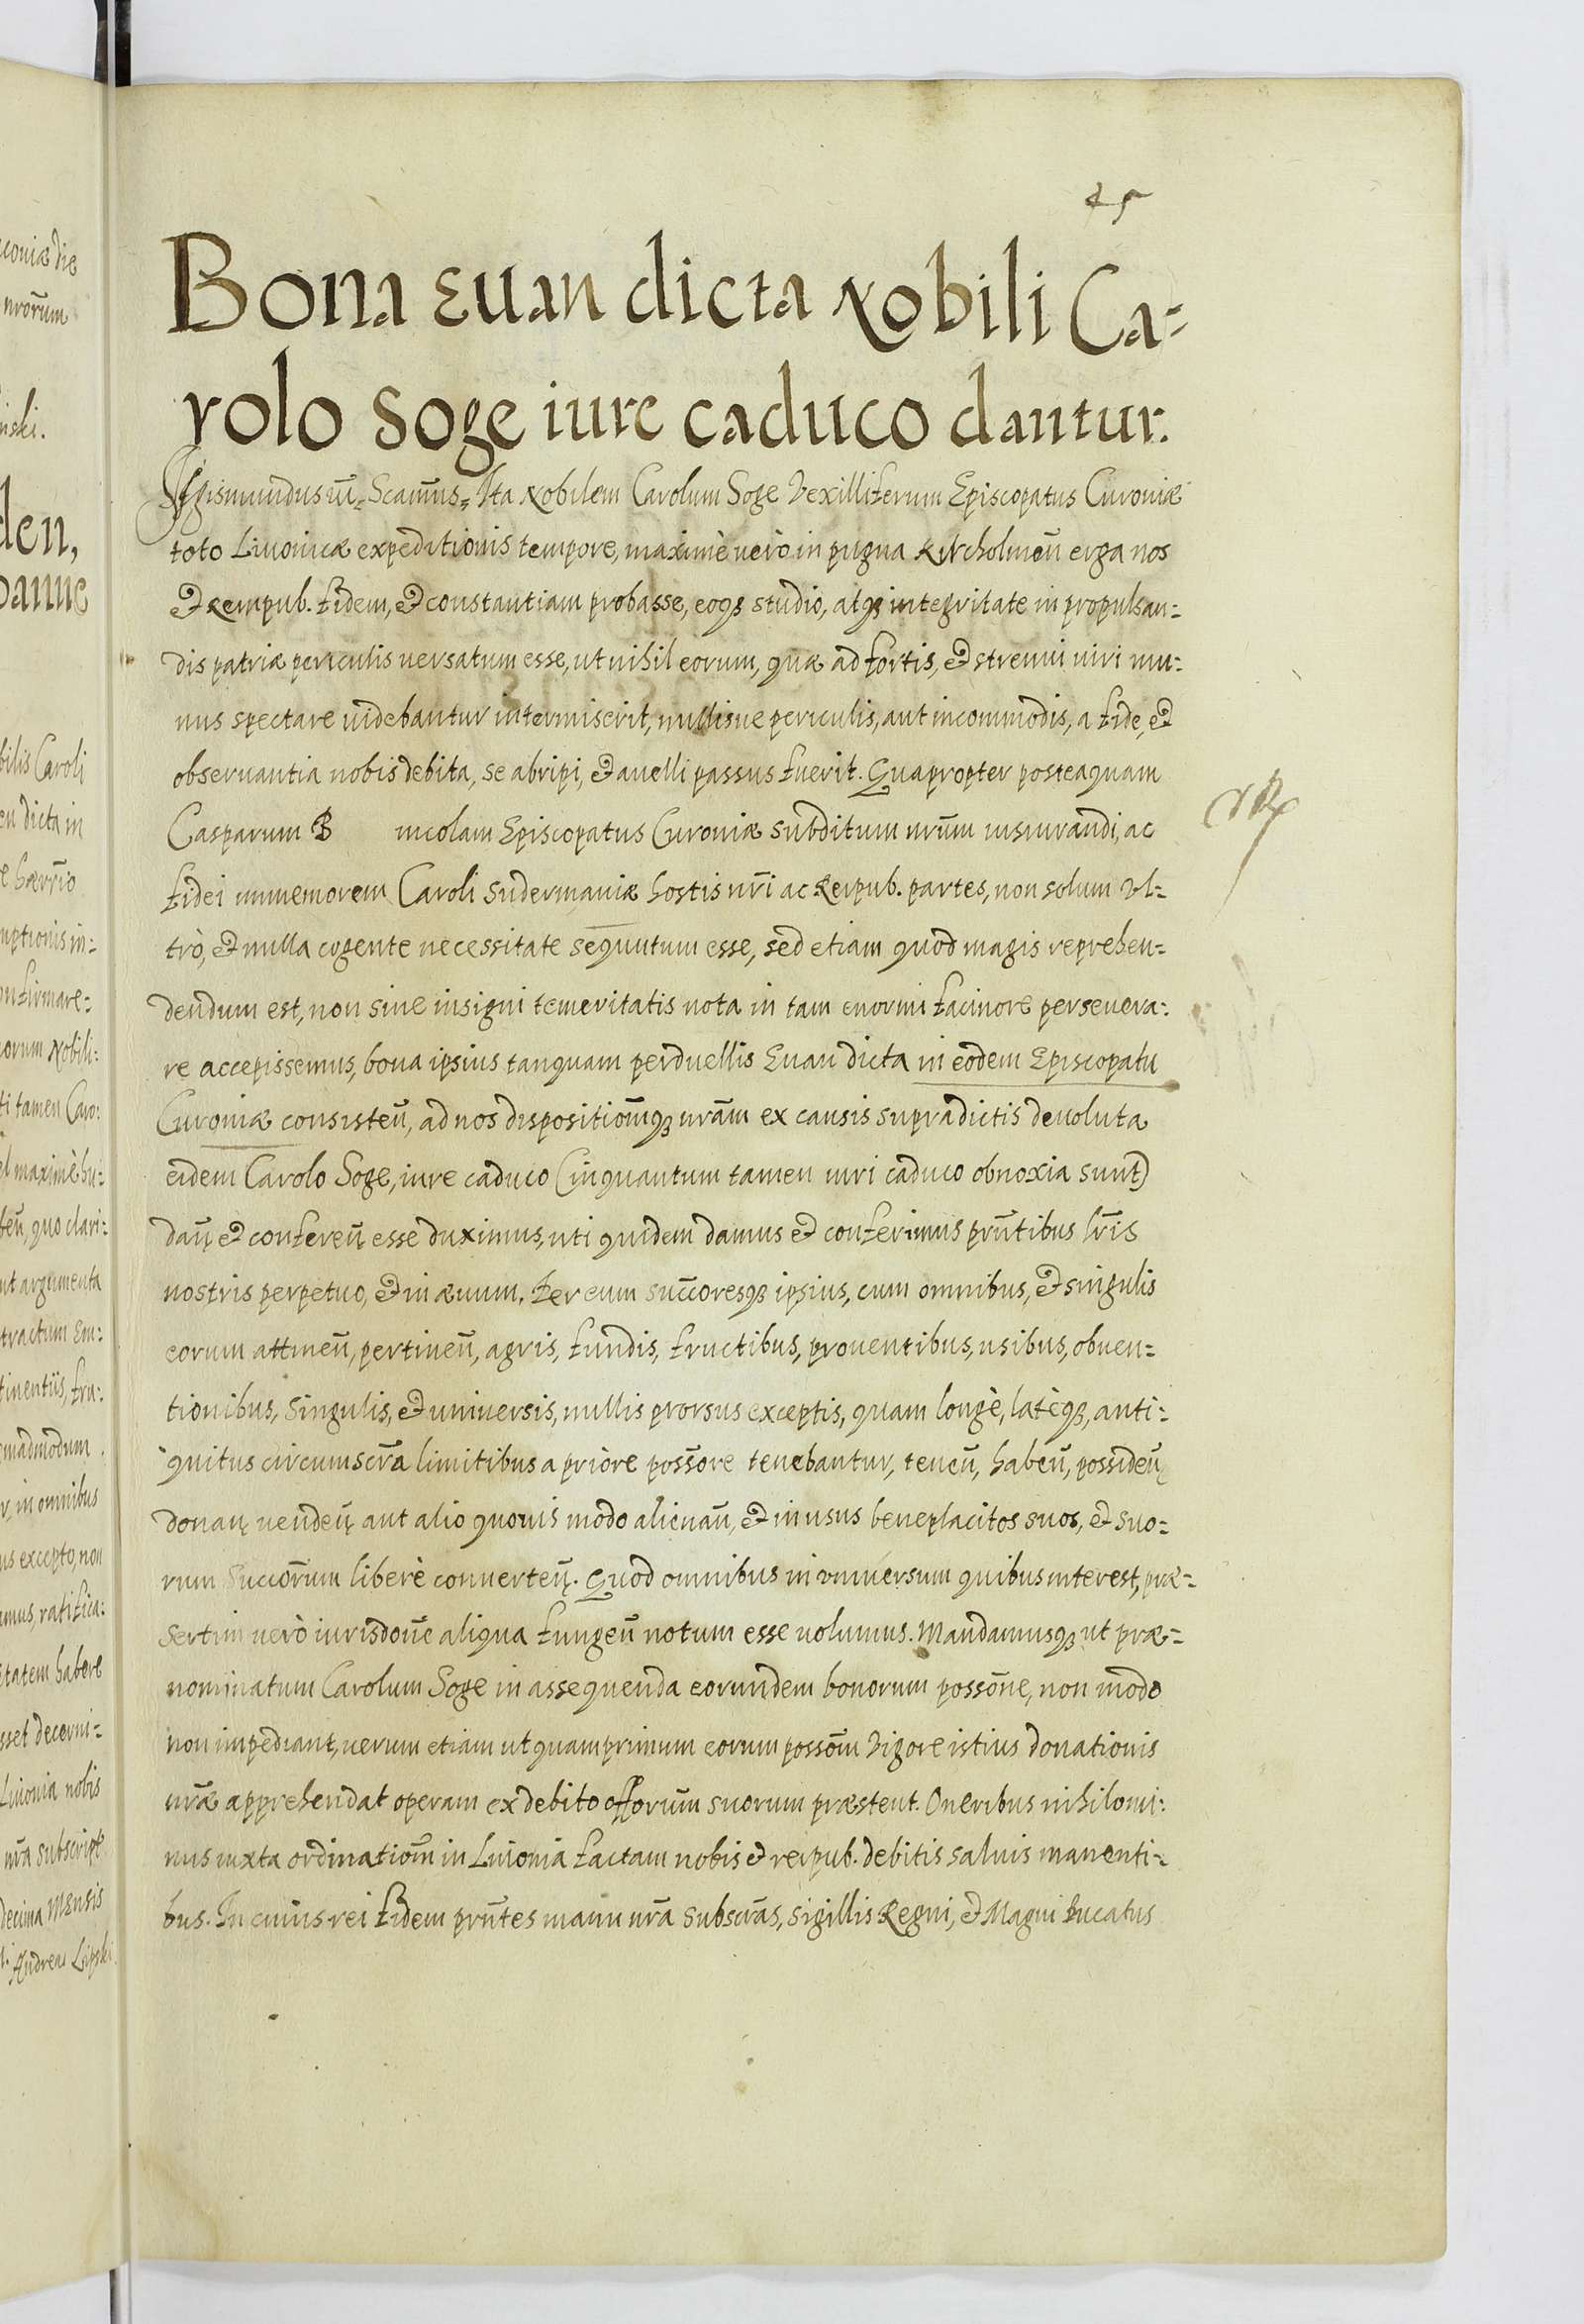 45
Bona Euan dicta Nobili Ca=
rolo Soge iure caduco dantur.
Sigismundus iii= Scimus= Ita Nobilem Carolum Soge Vexilliferum Episcopatus Curoniæ
toto Liuonicæ expeditionis tempore, maximè uerò in pugna Kircholmen̄ erga nos
et Rempub. fidem, et constantiam probasse, eoqȝ studio, atqȝ integritate in propulsan=
dis patriæ periculis uersatum esse, ut nihil eorum, quæ ad fortis, et strenui uiri mu=
nus spectare uidebantur intermiserit, nullisue periculis, aut incommodis, a fide, et
obseruantia nobis debita, se abripi, et auelli passus fuerit. Quapropter posteaquam
Casparum B incolam Episcopatus Curoniæ subditum nr̄um iusiurandi, ac
fidei immemorem Caroli Sudermaniæ hostis nr̄i ac Reipub. partes, non solum Vl=
trò, et nulla cogente necessitate sequutum esse, sed etiam quod magis reprehen=
dendum est, non sine insigni temeritatis nota in tam enormi facinore perseuera=
re accepissemus, bona ipsius tanquam perduellis Euan dicta in eodem Episcopatu
Curoniæ consisten̄, ad nos dispositiom̄qȝ nr̄am ex causis supradictis deuoluta
eidem Carolo Soge, iure caduco (inquantum tamen iuri caduco obnoxia sunt)
dan̄ et conferen̄ esse duximus, uti quidem damus et conferimus pr̄ntibus lr̄is
nostris perpetuo, et in æuum. Per eum succoresqȝ ipsius, cum omnibus, et singulis
eorum attinen̄, pertinen̄, agris, fundis, fructibus, prouentibus, usibus, obuen=
tionibus, singulis, et uniuersis, nullis prorsus exceptis, quam longè, latèqȝ, anti=
quitus circumscr̄a limitibus a priore possore tenebantur, tenen̄, haben̄, possiden̄
donan̄ uenden̄ aut alio quouis modo alienan̄, et in usus beneplacitos suos, et suo=
rum succorum liberè conuerten̄. Quod omnibus in uniuersum quibus interest, præ=
sertim uerò iurisdone aliqua fungen̄ notum esse uolumus. Mandamusqȝ ut præ=
nominatum Carolum Soge in assequenda eorundem bonorum possōne, non modo
non impediant, uerum etiam ut quamprimum eorum possōm Vigore istius donationis
nr̄æ apprehendat operam ex debito offorum suorum præstent. Oneribus nihilomi=
nus iuxta ordinatiom̄ in Liuonia factam nobis et reipub. debitis saluis manenti=
bus. In cuius rei fidem pr̄ntes manu nr̄a subscr̄as, sigillis Regni, et Magni Ducatus